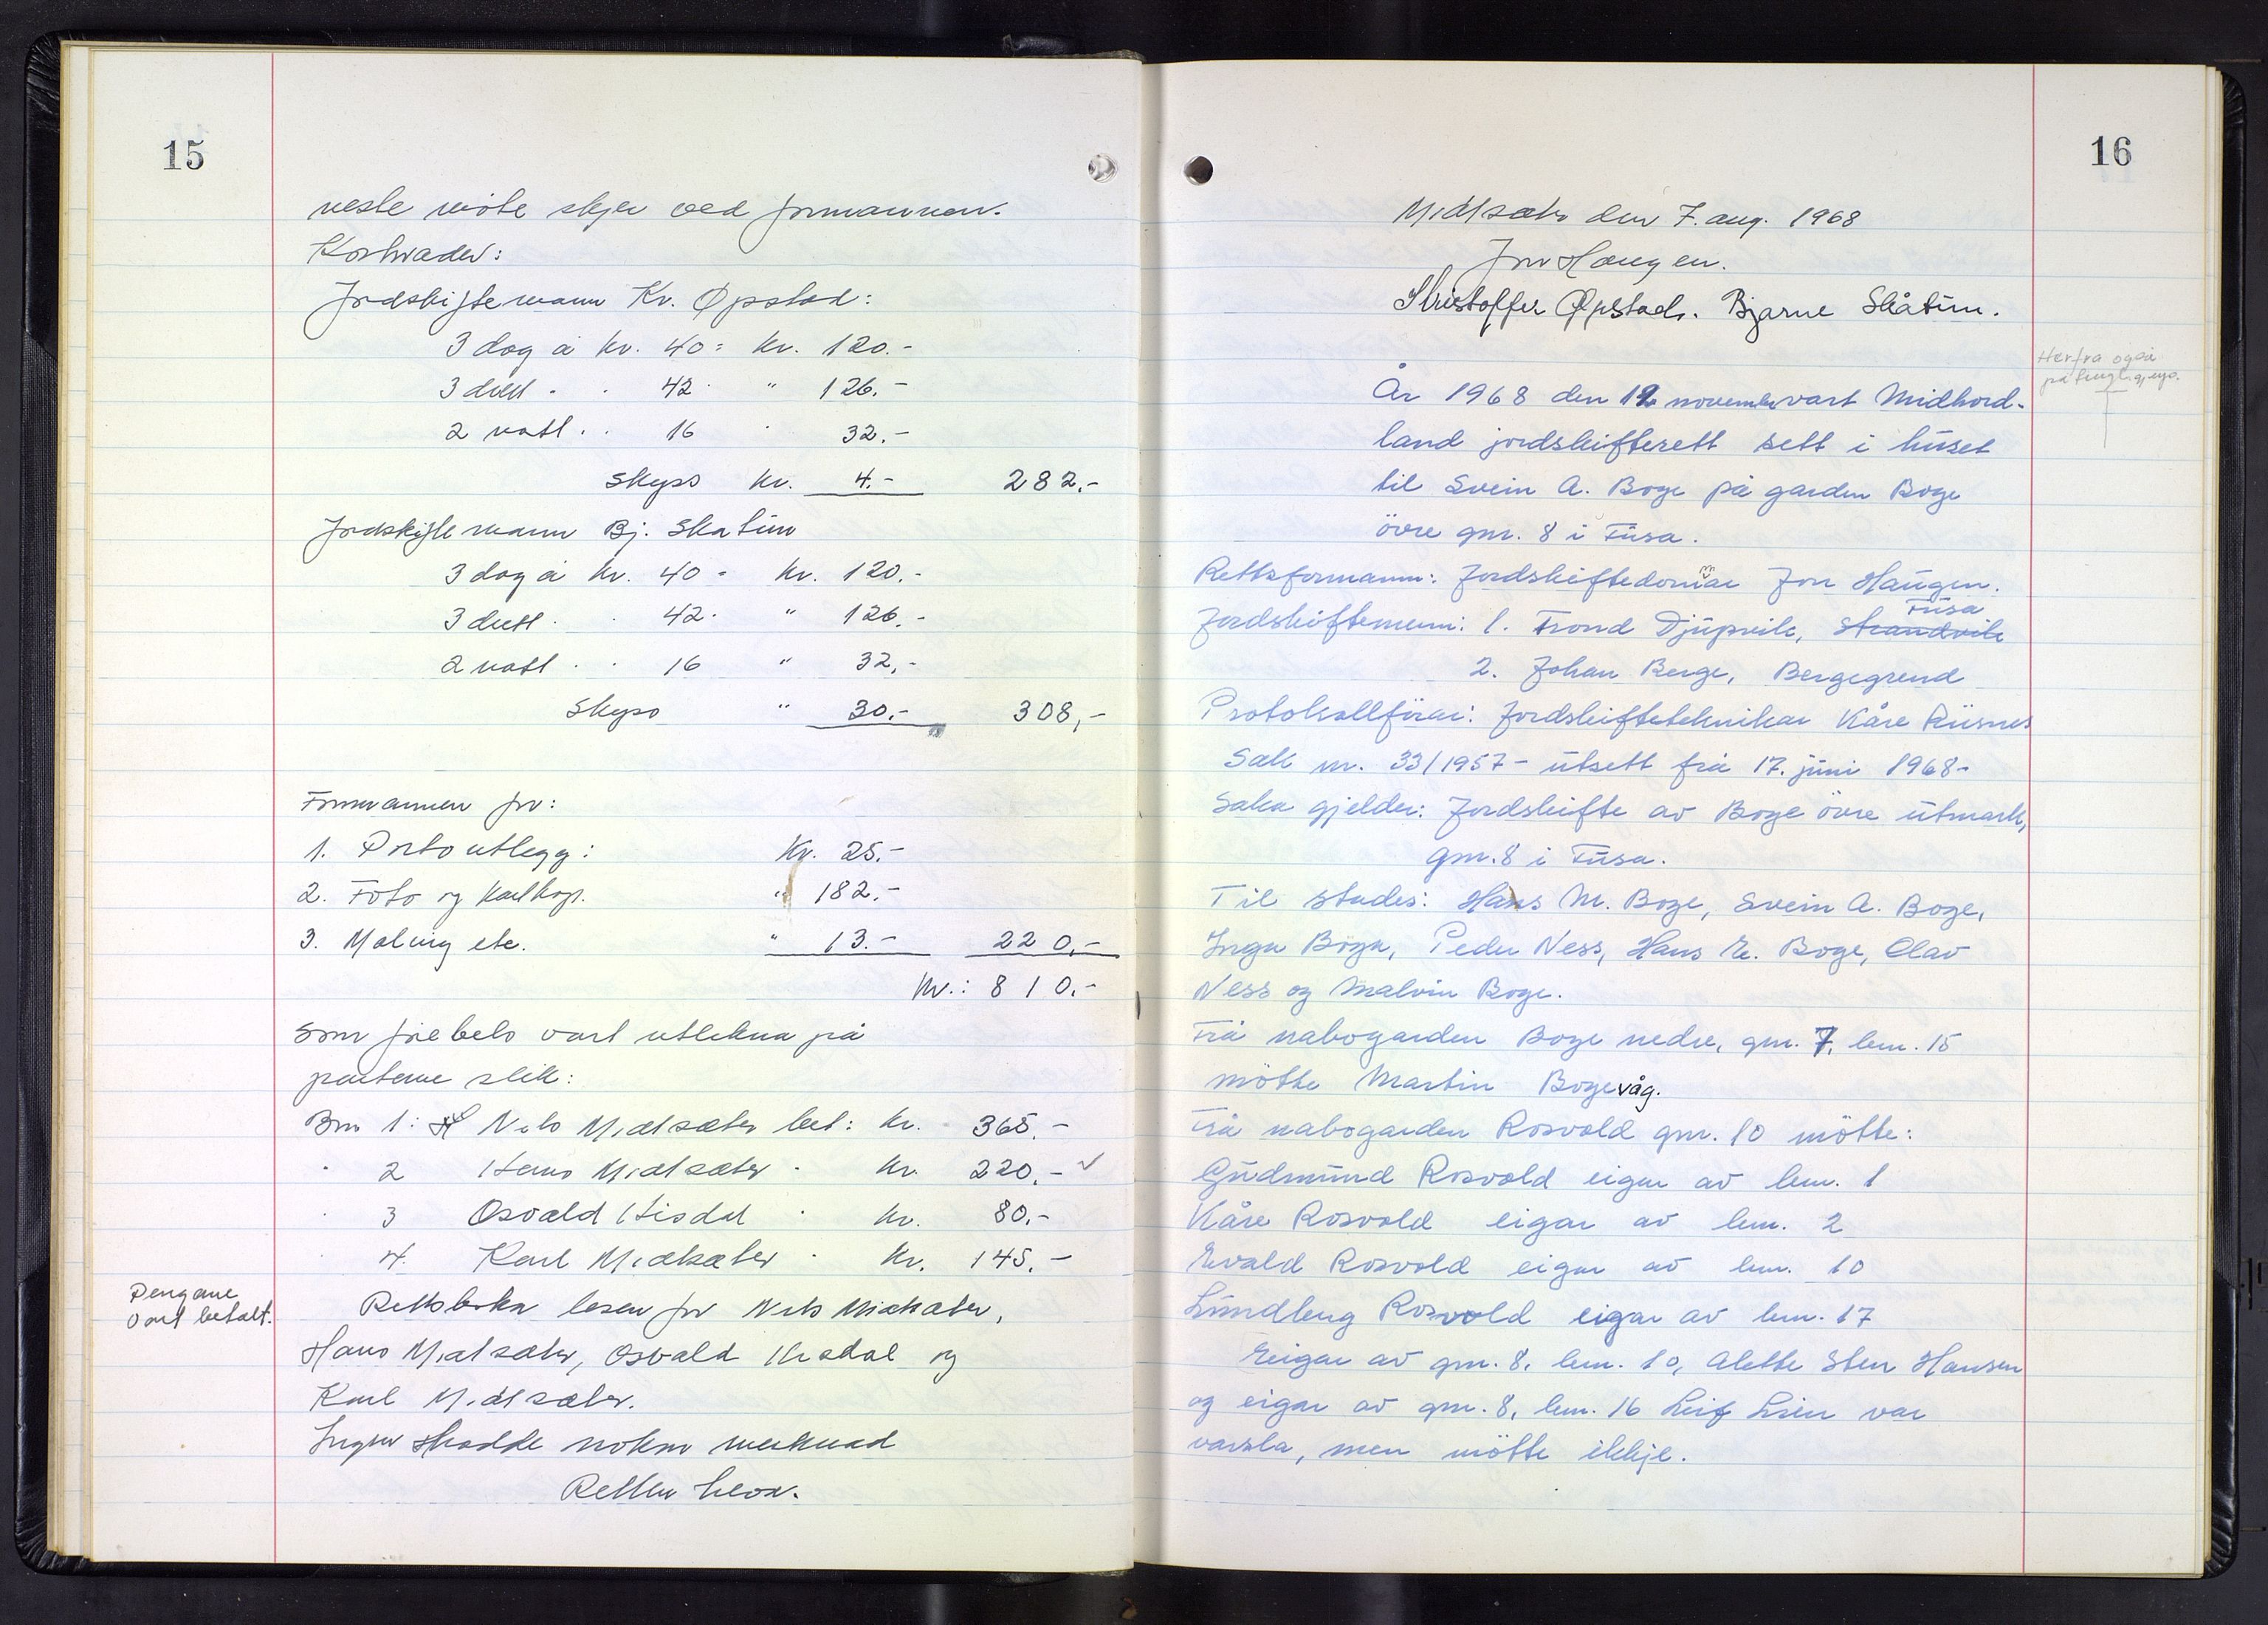 15
neste møte skjer ved formannen.
Kostnader:
Jordskiftemann Kv. Øpstad:
3 dag á kr. 40 = kr. 120.-
3 diett - · 42 · " 126.-
2 natt · · 16 · 32.-
skyss kr. 4.- 282.-
Jordskiftemann Bj. Skåtun
3 dag á kr. 40 - kr. 120.-
3 diett · · 42 · " 126.-
2 natt · · 16 " 32.-
Skyss " 30.- 308,-
Formannen for:
1. Porto utlegg: Kr. 25.-
2. Foto og kartkop. " 182.-
3. Maling etc. " 13.- 220,-
Kr.: 810.-
som førebels vart utlikna på
partane slik:
Bnr 1: Nils Midtsæter bet: kr. 365.-
· 2 Hans Midtsæter · kr. 220.- ✓
· 3 Osvald Hisdal · kr. 80.-
· 4. Karl Midtsæter · kr. 145.-
Pengane
vart betalt.
Rettsboka lesen for Nils Midtsæter,
Hans Midtsæter, Osvald Hisdal og
Karl Midtsæter.
Ingen hadde nokon merknad
Retten heva.
16
Midtsæter den 7. aug. 1968
Jon Haugen.
Kristoffer Øpstad. Bjarne Skåtun.
Herfra også
på
År 1968 den 12 november vart Midhord-
land jordskifterett sett i huset
til Svein A. Boge på garden Boge
övre gnr. 8 i Fusa.
Rettsformann: Jordskiftedommar Jon Haugen.
Fusa
Jordskiftemenn: 1. Trond Djupvik, Strandvik
2. Johan Berge, Bergegrend
Protokollförar: Jordskifteteknikar Kåre Riisnes
Sak nr. 33/1957 - utsett frå 17. juni 1968-
Saka gjelder: Jordskifte av Boge övre utmark,
gnr. 8 i Fusa.
Til stades: Hans M. Boge, Svein A. Boge,
Inga Boge, Peder Ness, Hans E. Boge, Olav
Ness og Malvin Boge.
Frå nabogarden Boge nedre, gnr. 7, bnr. 15
mötte Martin Bogevåg.
Frå nabogarden Rosvold gnr. 10 mötte:
Gudmund Rosvold eigar av bnr. 1
Kåre Rosvold eigar av bnr. 2
Evald Rosvold eigar av bnr. 10
Lundberg Rosvold eigar av bnr. 17
Eigar av gnr. 8, bnr. 10, Alette Sten Hansen
og eigar av gnr. 8, bnr. 16 Leif Lien var
varsla, men mötte ikkje.